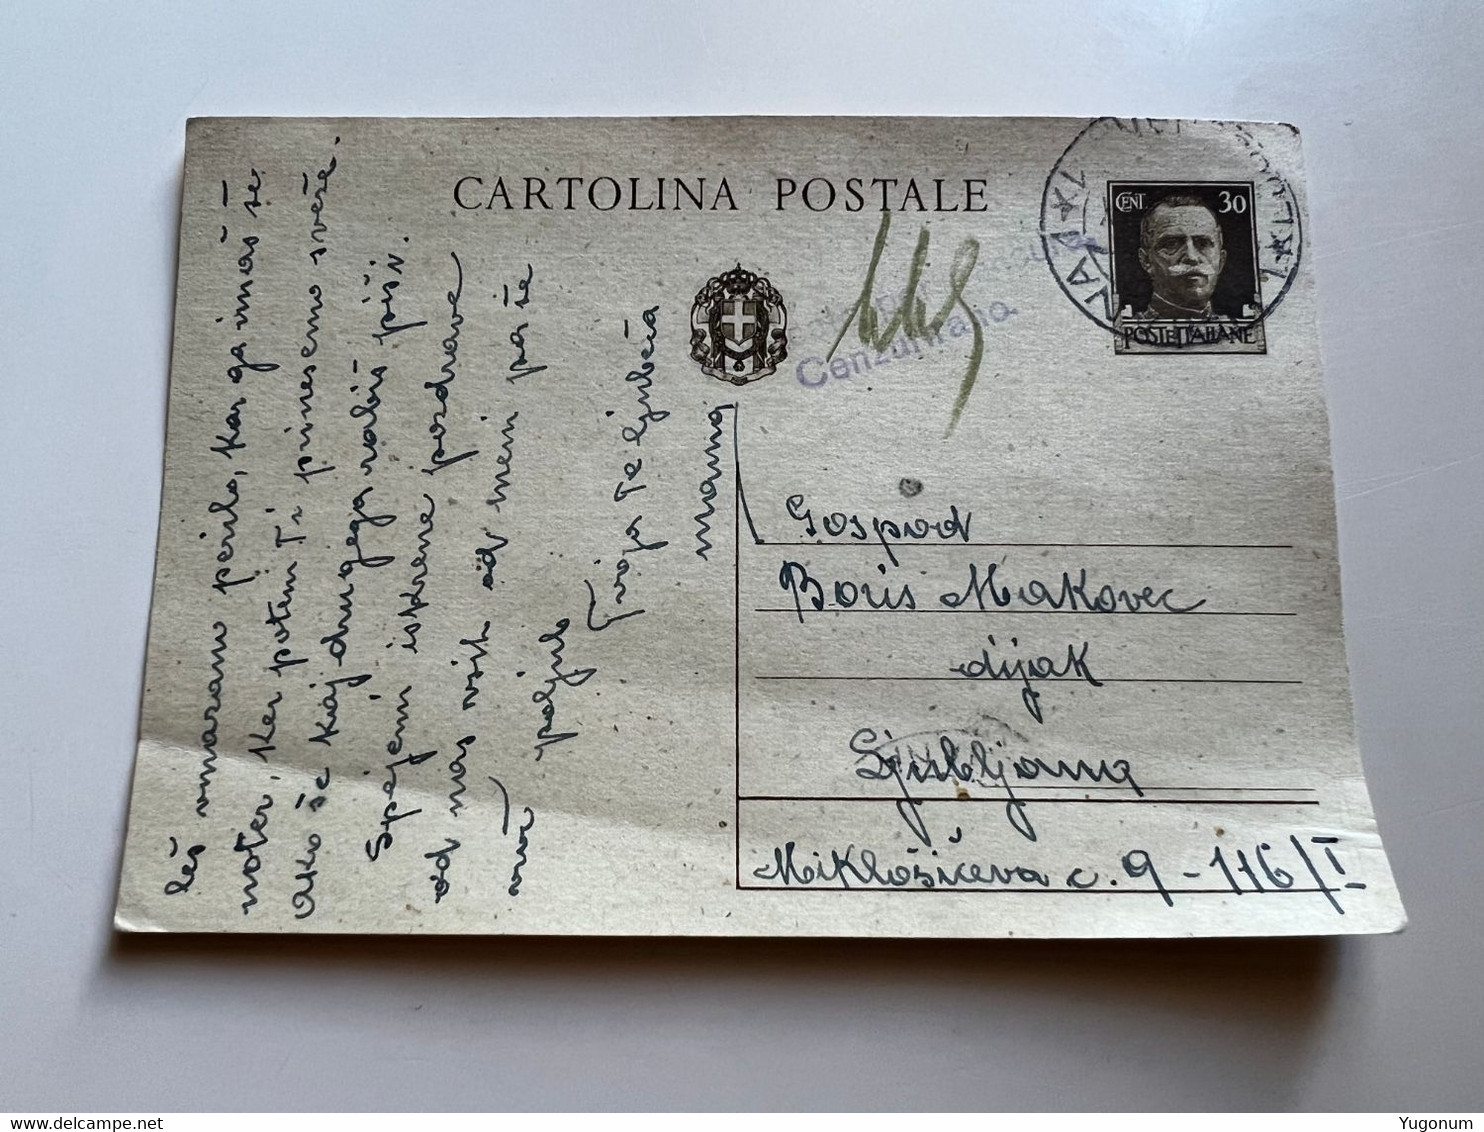 CARTOLINA POSTALE
CENT 30
POSTE ITALIANE
Cenzurirano.
Gospod
Boris Makovec
dijak
Ljubljana
Miklošičeva c. 9 - 116/I
leš umazano perilo, kar ga imaš še
noter, ker potem Ti prinesemo sveže.
Ako še kaj drugega rabiš piši.
Sprejmi iskrene pozdrave
od nas vseh od meni pa še
vroč poljub
Tvoja Te ljubeča
mama
Yugonum
delcampe.net